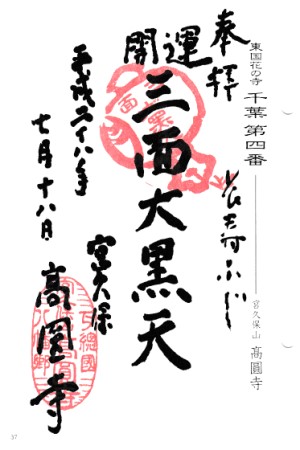 東国花の寺 千葉第四番 宮久保山 高圓寺
奉拝
長寿ふじ
開運
三面大黒天
宮久保
高圓寺
平成二十八年
七月十八日
57